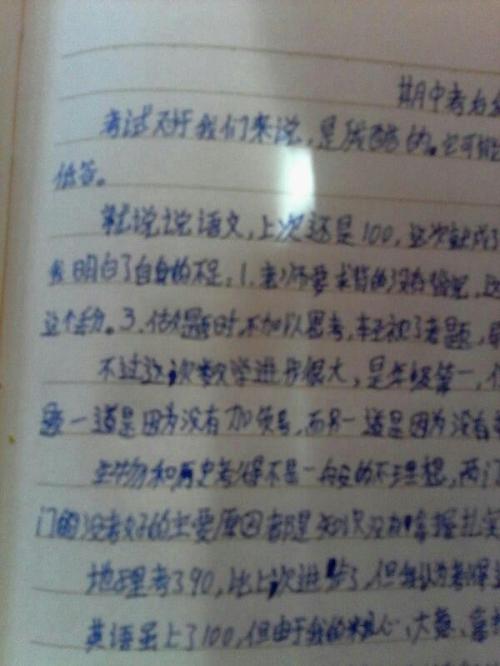 期中考
考试对于我们来说,是残酷的。它可
低答。
就说说语文,上次还是100,这次就成了
我明白了自身的不足,1.老师要求背的没有
这个丢分。3.做题时,不加以思考,轻视了考题,
不过这次数学进步很大,是年级第一,
一道是因为没有加负号,而另一道是因为没有
生物和历史考得不是一般的不理想,两门
门的没考好的主要原因都是知识没有掌握扎实
地理考了90,比上次进步了,但我认为考得
英语虽上了100,但由于我的粗心、大意,